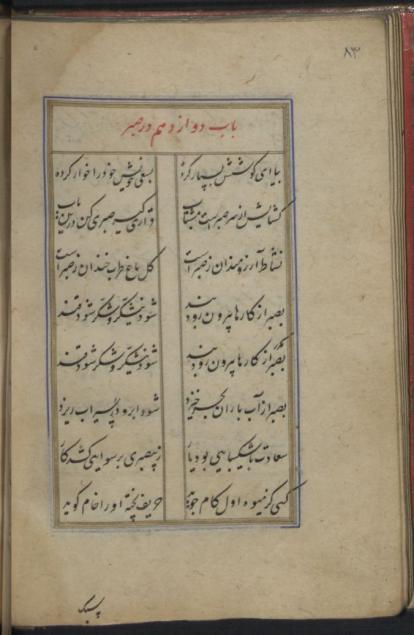 ۸۳
باب دوازدهم در صبر
بیا ای کوشش بسیار کرده بسعی خویش خود را خوار کرده
گشایش از سر صبر است مشتاب قراری گیر صبری کن درین باب
نشاط آرزومندان ز صبر است گل باغ طرب خندان ز صبر است
بصبر از کارها بیرون رود بند شود نیشکر و شکر شود قند
بصبر از کارها بیرون رود بند شود نیشکر و شکر شود قند
بصبر از آب باران بحر خیزد شود ابر و سیراب ریزد
سعادت با شکیبایی بود یار ز بیصبری برسوایی کشد کار
کسی کز میوه اول کام جوید حریف پخته او را خام گوید